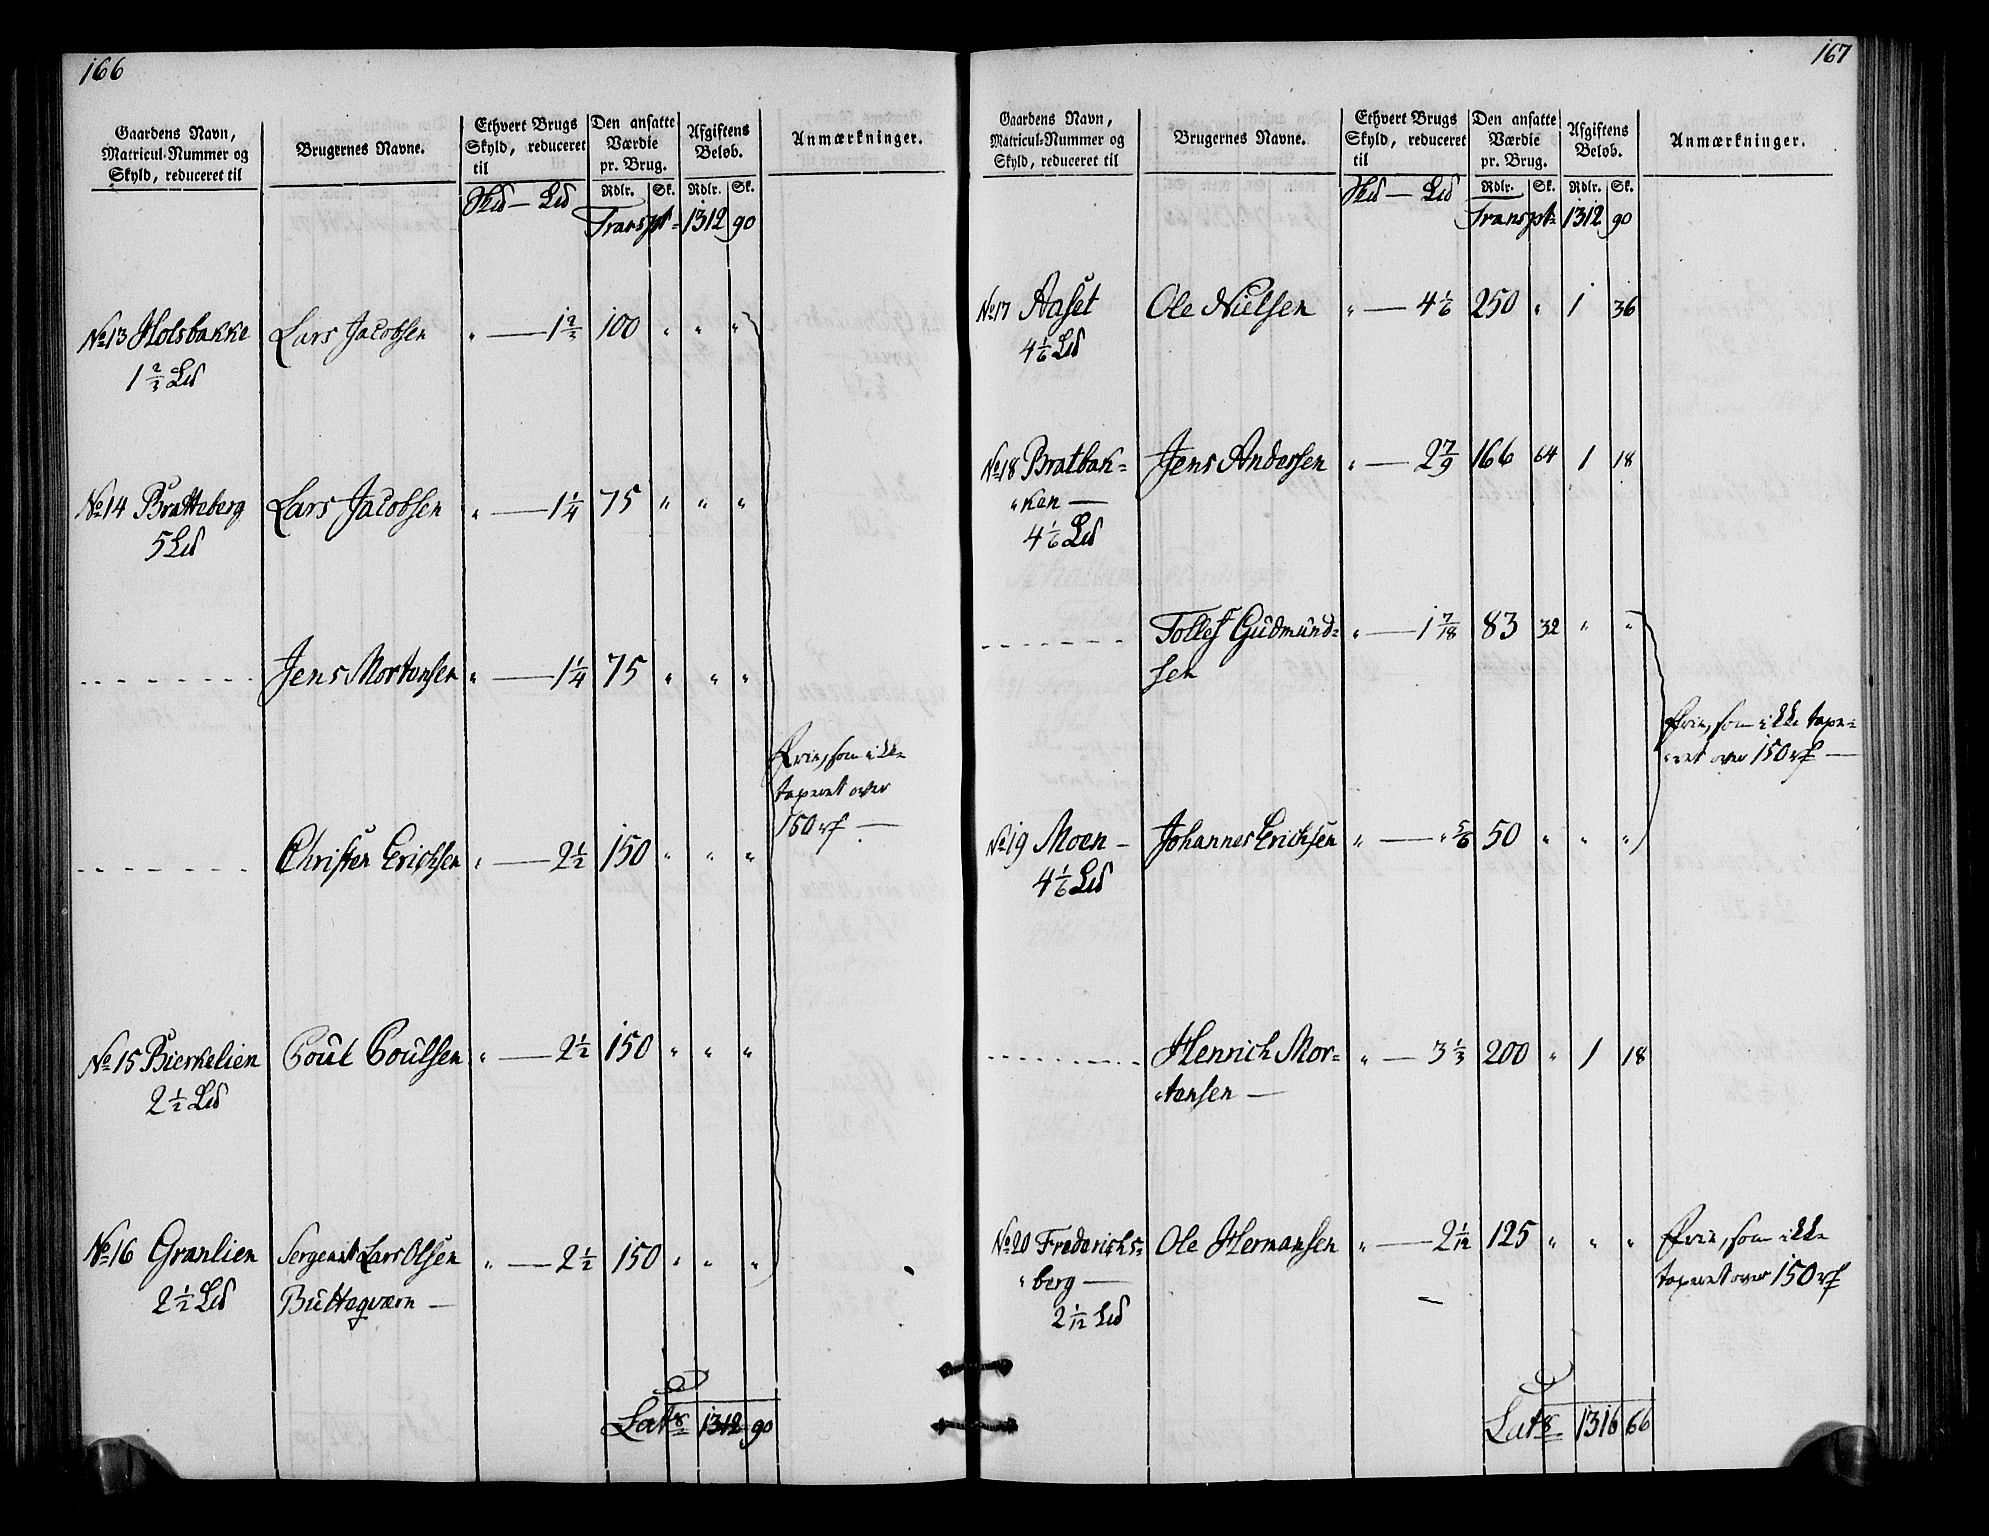 166
Gaardens Navn, Matricul-Nummer og Skyld, reduceret til
Brugernes Navne.
Ethvert Brugs Skyld, reduceret til
Den ansatte Værdie pr. Brug.
Afgiftens Beløb.
Anmærkninger.
Rdlr. Sk. Rdlr. Sk.
Transpt 1312 90
No 13 Holsbakke Lars Jacobsen " — 1 2/3 100 " " "
1 2/3 L℔
No 14 Bratteberg Lars Jacobsen " — 1 1/4 75 " " "
5 L℔
Jens Mortensen " — 1 1/4 75 " " "
frie, som ikke
taxeret over
150 rd —
Christen Erichsen " — 2 1/2 150 " " "
No 15 Bierkelien Poul Poulsen " — 2 1/2 150 " " "
2 1/2 L℔
No 16 Granlien Sergeant Lars Olsen " — 2 1/2 150 " " "
2 1/2 L℔ Buttegværn —
Lats 1312 90
167
Gaardens Navn, Matricul-Nummer og Skyld, reduceret til
Brugernes Navne.
Ethvert Brugs Skyld, reduceret til
Den ansatte Værdie pr. Brug.
Afgiftens Beløb.
Anmærkninger.
Rdlr. Sk. Rdlr. Sk.
Transpt 1312 90
No 17 Aaset Ole Nielsen " — 4 1/6 250 " 1 36
4 1/6 L℔
No 18 Bratbak= Jens Andersen " — 2 7/9 166 64 1 18
"ken —
4 1/6 L℔
Tollef Gudmund= " — 1 7/18 83 32 " "
sen
frie, som ikke taxe=
"ret over 150 rd —
No 19 Moen — Johannes Erichsen " — " 5/6 50 " " "
4 1/6 L℔
Henrich Mor= " — 3 1/3 200 " 1 18
"tensen —
No 20 Frederichs= Ole Hermansen " — 2 1/12 125 " " " frie, som ikke
"berg — taxeret over 150 rd
2 1/12 L℔
Lats 1316 66